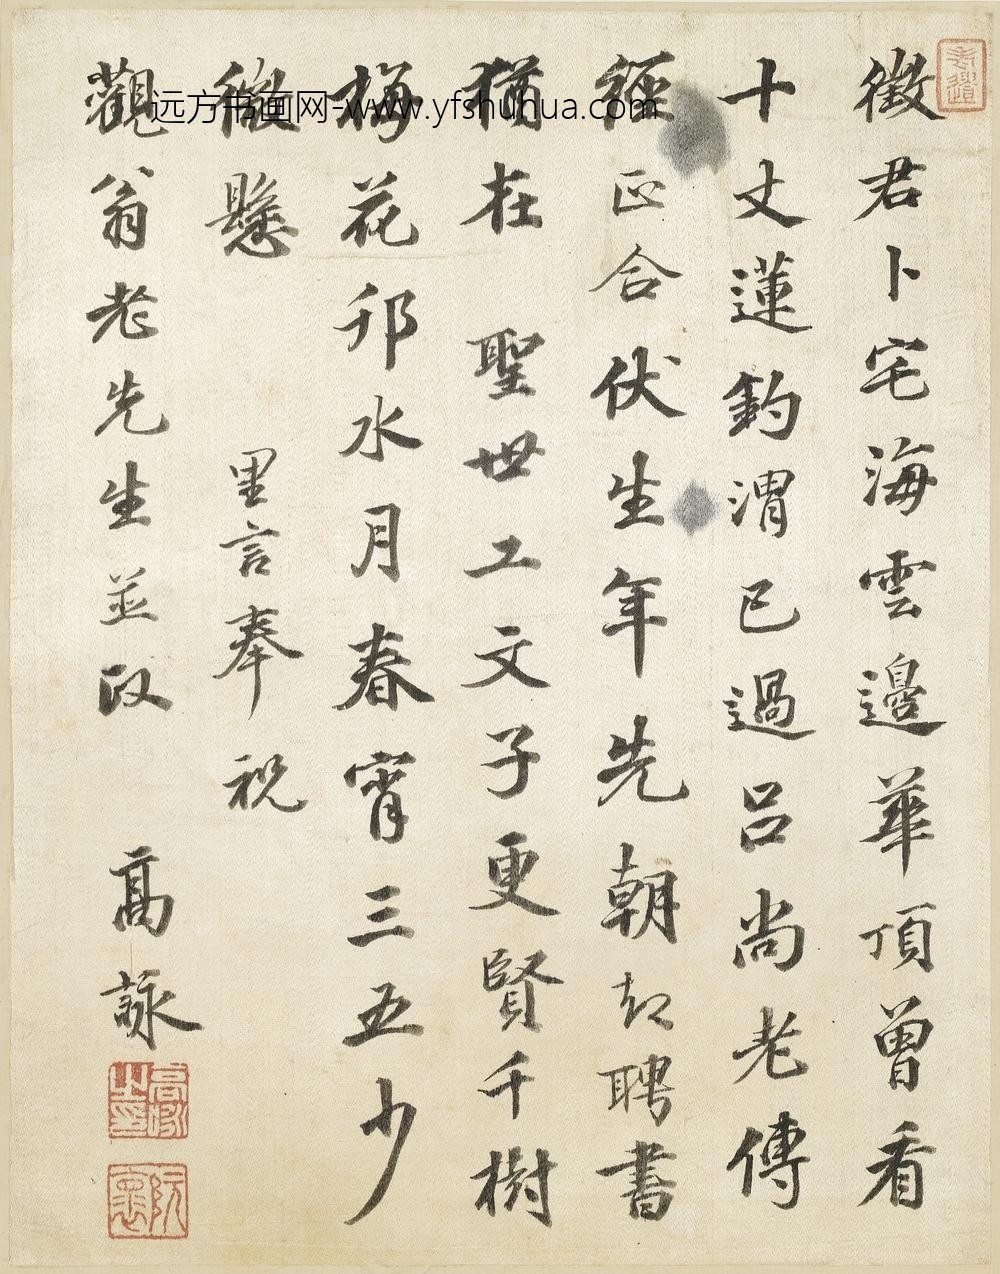 徵君卜宅海雲邊華頂曾看
十丈蓮釣渭已過呂尚老傳
經正合伏生年先朝却聘書
猶在聖世工文子更賢千樹
梅花邗水月春宵三五少
微懸里言奉祝
觀翁老先生並政高詠
高詠之印
阮懷
远方书画网-www.yfshuhua.com